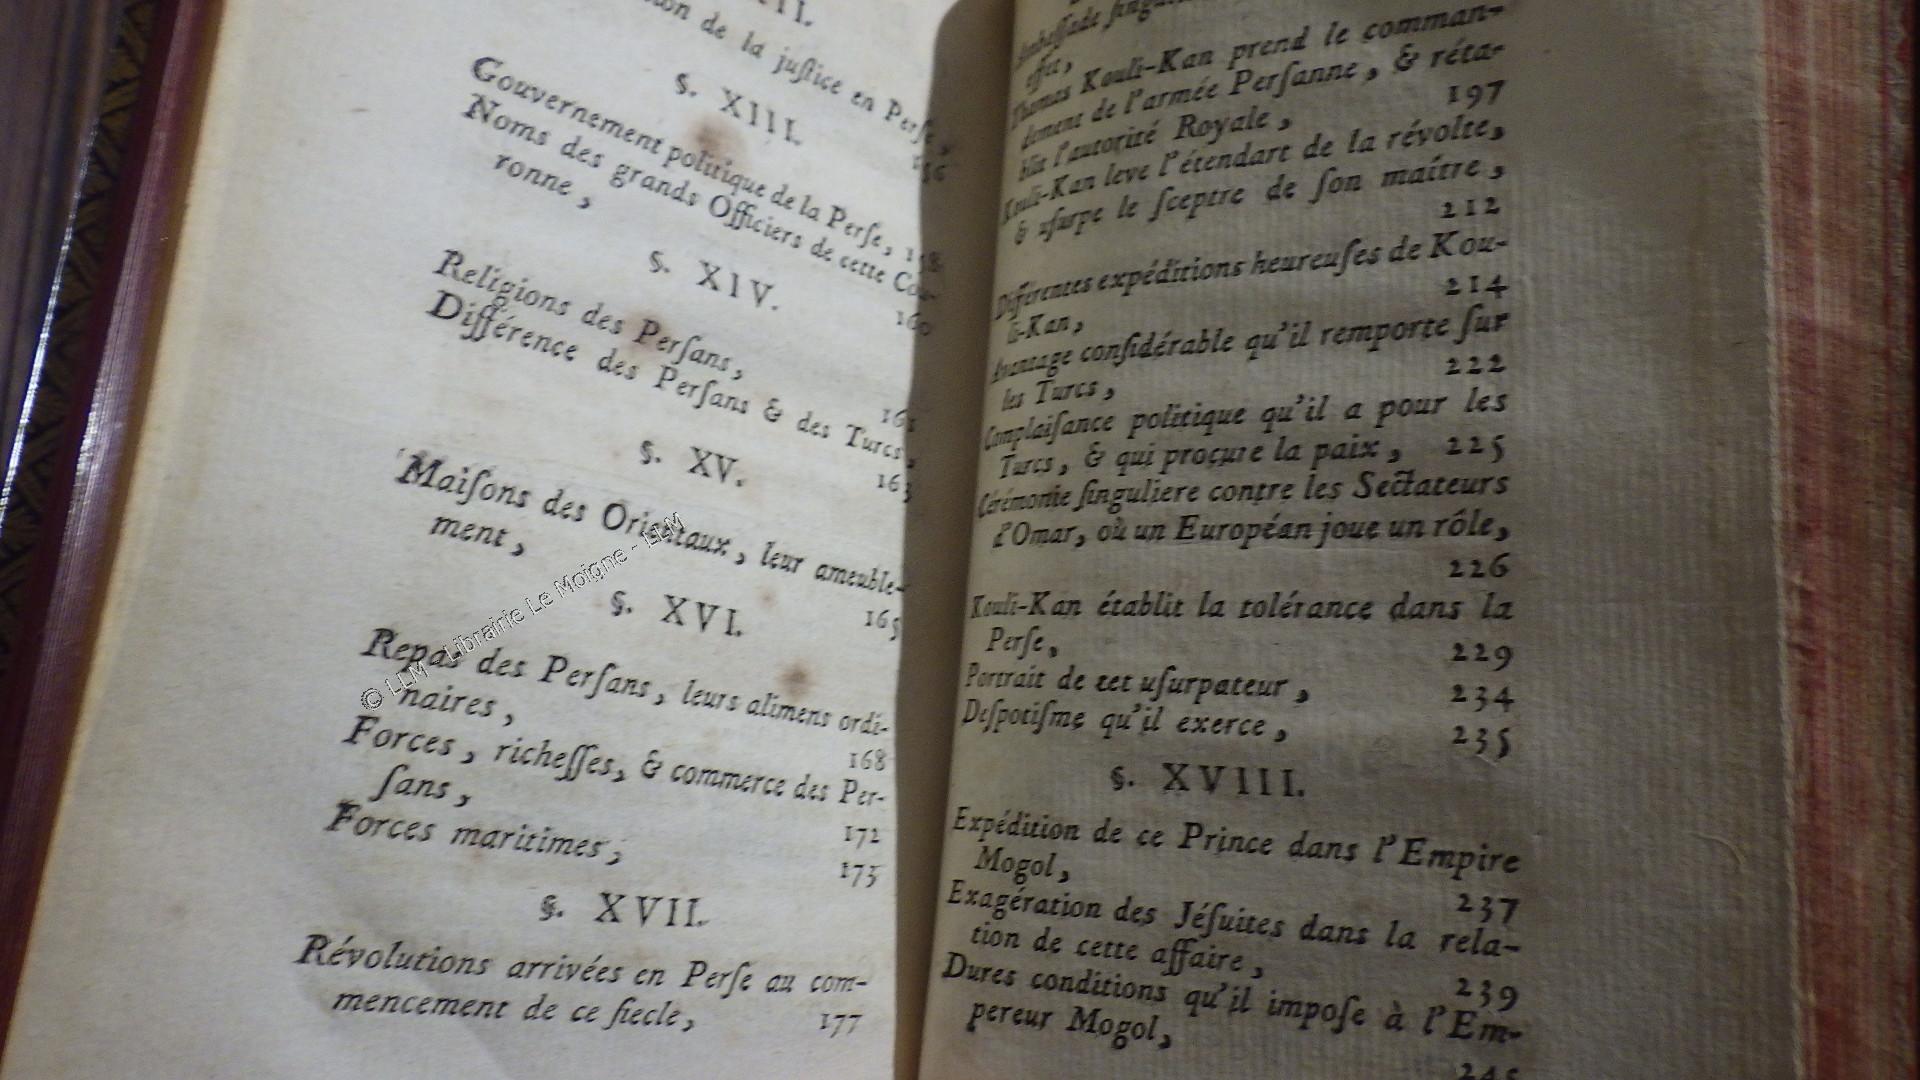 de la justice en Perse,
§. XIII.
Gouvernement politique de la Perse, 158
Noms des grands Officiers de cette Cou-
ronne, 160
§. XIV.
Religions des Persans,
Différence des Persans & des Turcs,
163
§. XV.
Maisons des Orientaux, leur ameuble-
ment, 165
§. XVI.
Repas des Persans, leurs alimens ordi-
naires, 168
Forces, richesses, & commerce des Per-
sans, 172
Forces maritimes, 175
§. XVII.
Révolutions arrivées en Perse au com-
mencement de ce siecle, 177
Ambassade
effet,
Thamas Kouli-Kan prend le comman-
dement de l'armée Persanne, & réta-
blit l'autorité Royale, 197
Kouli-Kan leve l'étendart de la révolte,
& usurpe le sceptre de son maître,
212
Différentes expéditions heureuses de Kou-
li-Kan, 214
Avantage considérable qu'il remporte sur
les Turcs, 222
Complaisance politique qu'il a pour les
Turcs, & qui procure la paix, 225
Cérémonie singuliere contre les Sectateurs
d'Omar, où un Européan joue un rôle,
226
Kouli-Kan établit la tolérance dans la
Perse, 229
Portrait de cet usurpateur, 234
Despotisme qu'il exerce, 235
§. XVIII.
Expédition de ce Prince dans l'Empire
Mogol, 237
Exagération des Jésuites dans la rela-
tion de cette affaire, 239
Dures conditions qu'il impose à l'Em-
pereur Mogol, 245
© LLM - Librairie Le Moigne - LLM